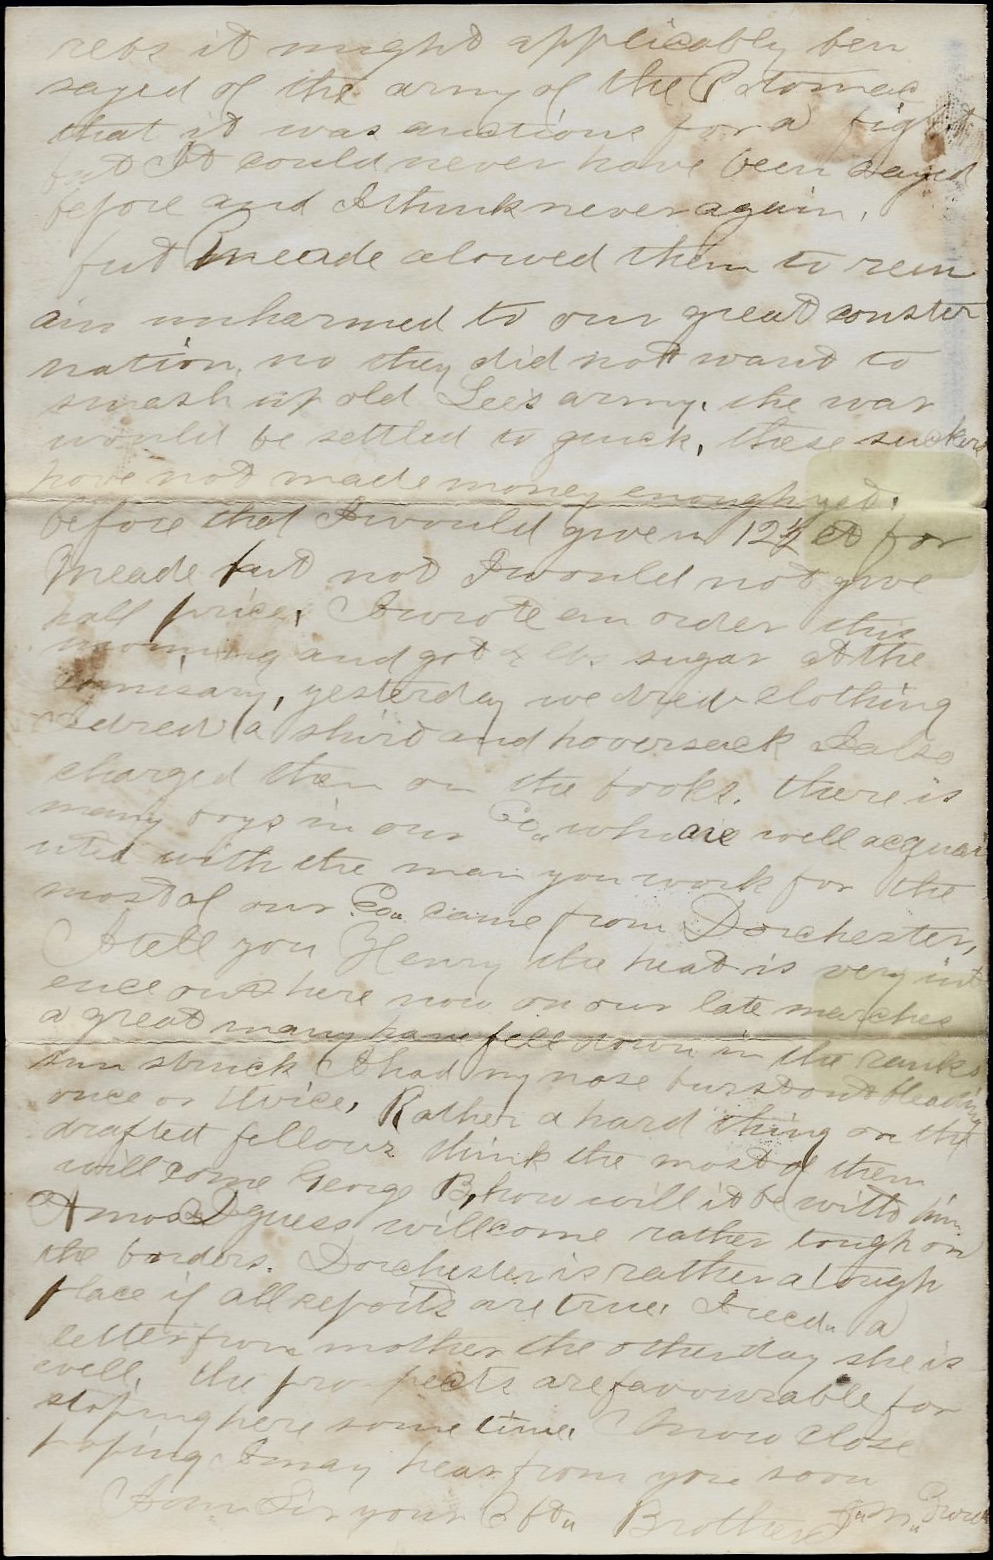 rebs it might applicably ben
sayed of the army of the Potomac
that it was anctious for a fight
but It could never have been sayed
before and I think never again.
but Meade alowed them to rem
ain unharmed to our great conster
nation, no they did not want to
smash up old Lee's army. the war
would be settled to quick, these suckers
have not made money enough yet.
before that I would given 12½ ct for
Meade but not I would not give
half price, I wrote an order this
morning and got lbs sugar at the
comisary, yesterday we drew clothing
I drew a shirt and haversack I also
charged them on the books. there is
many boys in our Co,, who are well acquai
nted with the man you work for the
most of our Co,, came from Dorchester,
I tell you Henry the heat is very int
ence out here now on our late marches
a great many have fell down in the ranks
sun struck I had my nose burst out bleading
once or twice, Rather a hard thing on the
drafted fellows think the most of them
will come George B, how will it be with him
Amos I guess will come rather tough on
the borders. Dorchester is rather a tough
place if all reports are true. I recd,, a
letter from mother the other day she is
well, the prospects are favourable for
stoping here some time. I now close
hoping I may hear from you soon
I am Sir your Aft,, Brother